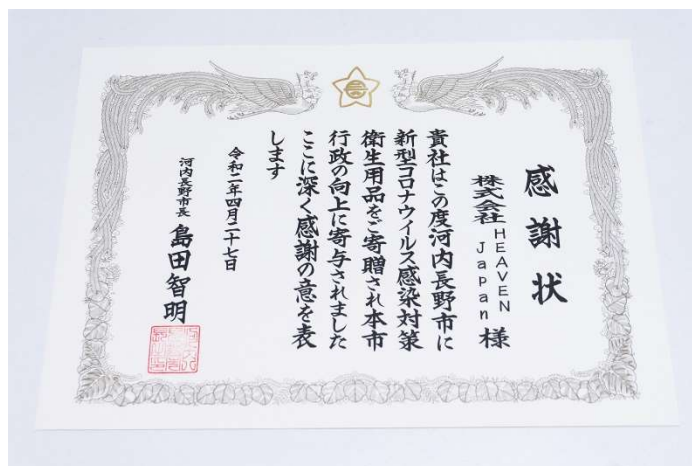 感謝状
株式会社 HEAVEN Japan 様
貴社はこの度河内長野市に
新型コロナウイルス感染対策
衛生用品をご寄贈され本市
行政の向上に寄与されました
ここに深く感謝の意を表
します
令和二年四月二十七日
河内長野市長 島田智明